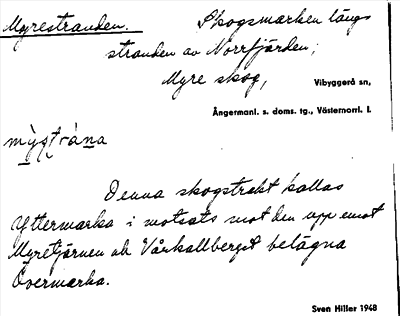 Myrestranden. Skogsmarken längs
stranden av Norrfjärden;
Myre skog, Vibyggerå sn,
Ångermanl. s. doms. tg., Västernorrl. l.
mỳstràna
Denna skogstrakt kallas
Yttermarka i motsats mot den upp emot
Myretjärnen och Vårkallberget belägna
Övermarka.
Sven Hiller 1948